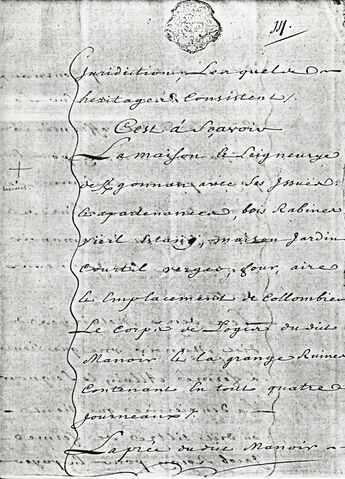 14.
Juridiction, Lesquels
heritages Consistent /
C'est á Sçavoir
La maison & Seigneurye
de avec Ses Issues
& apartenances, bois Rabines
vieil Estang, maison Jardin
Courtil verger, four, aire
& Emplacement de Collombier
Le Corps de Logix du dict
Manoir & la grange Ruines
Contenant En tout quatre
Journeaux /
La prée du dict Manoir